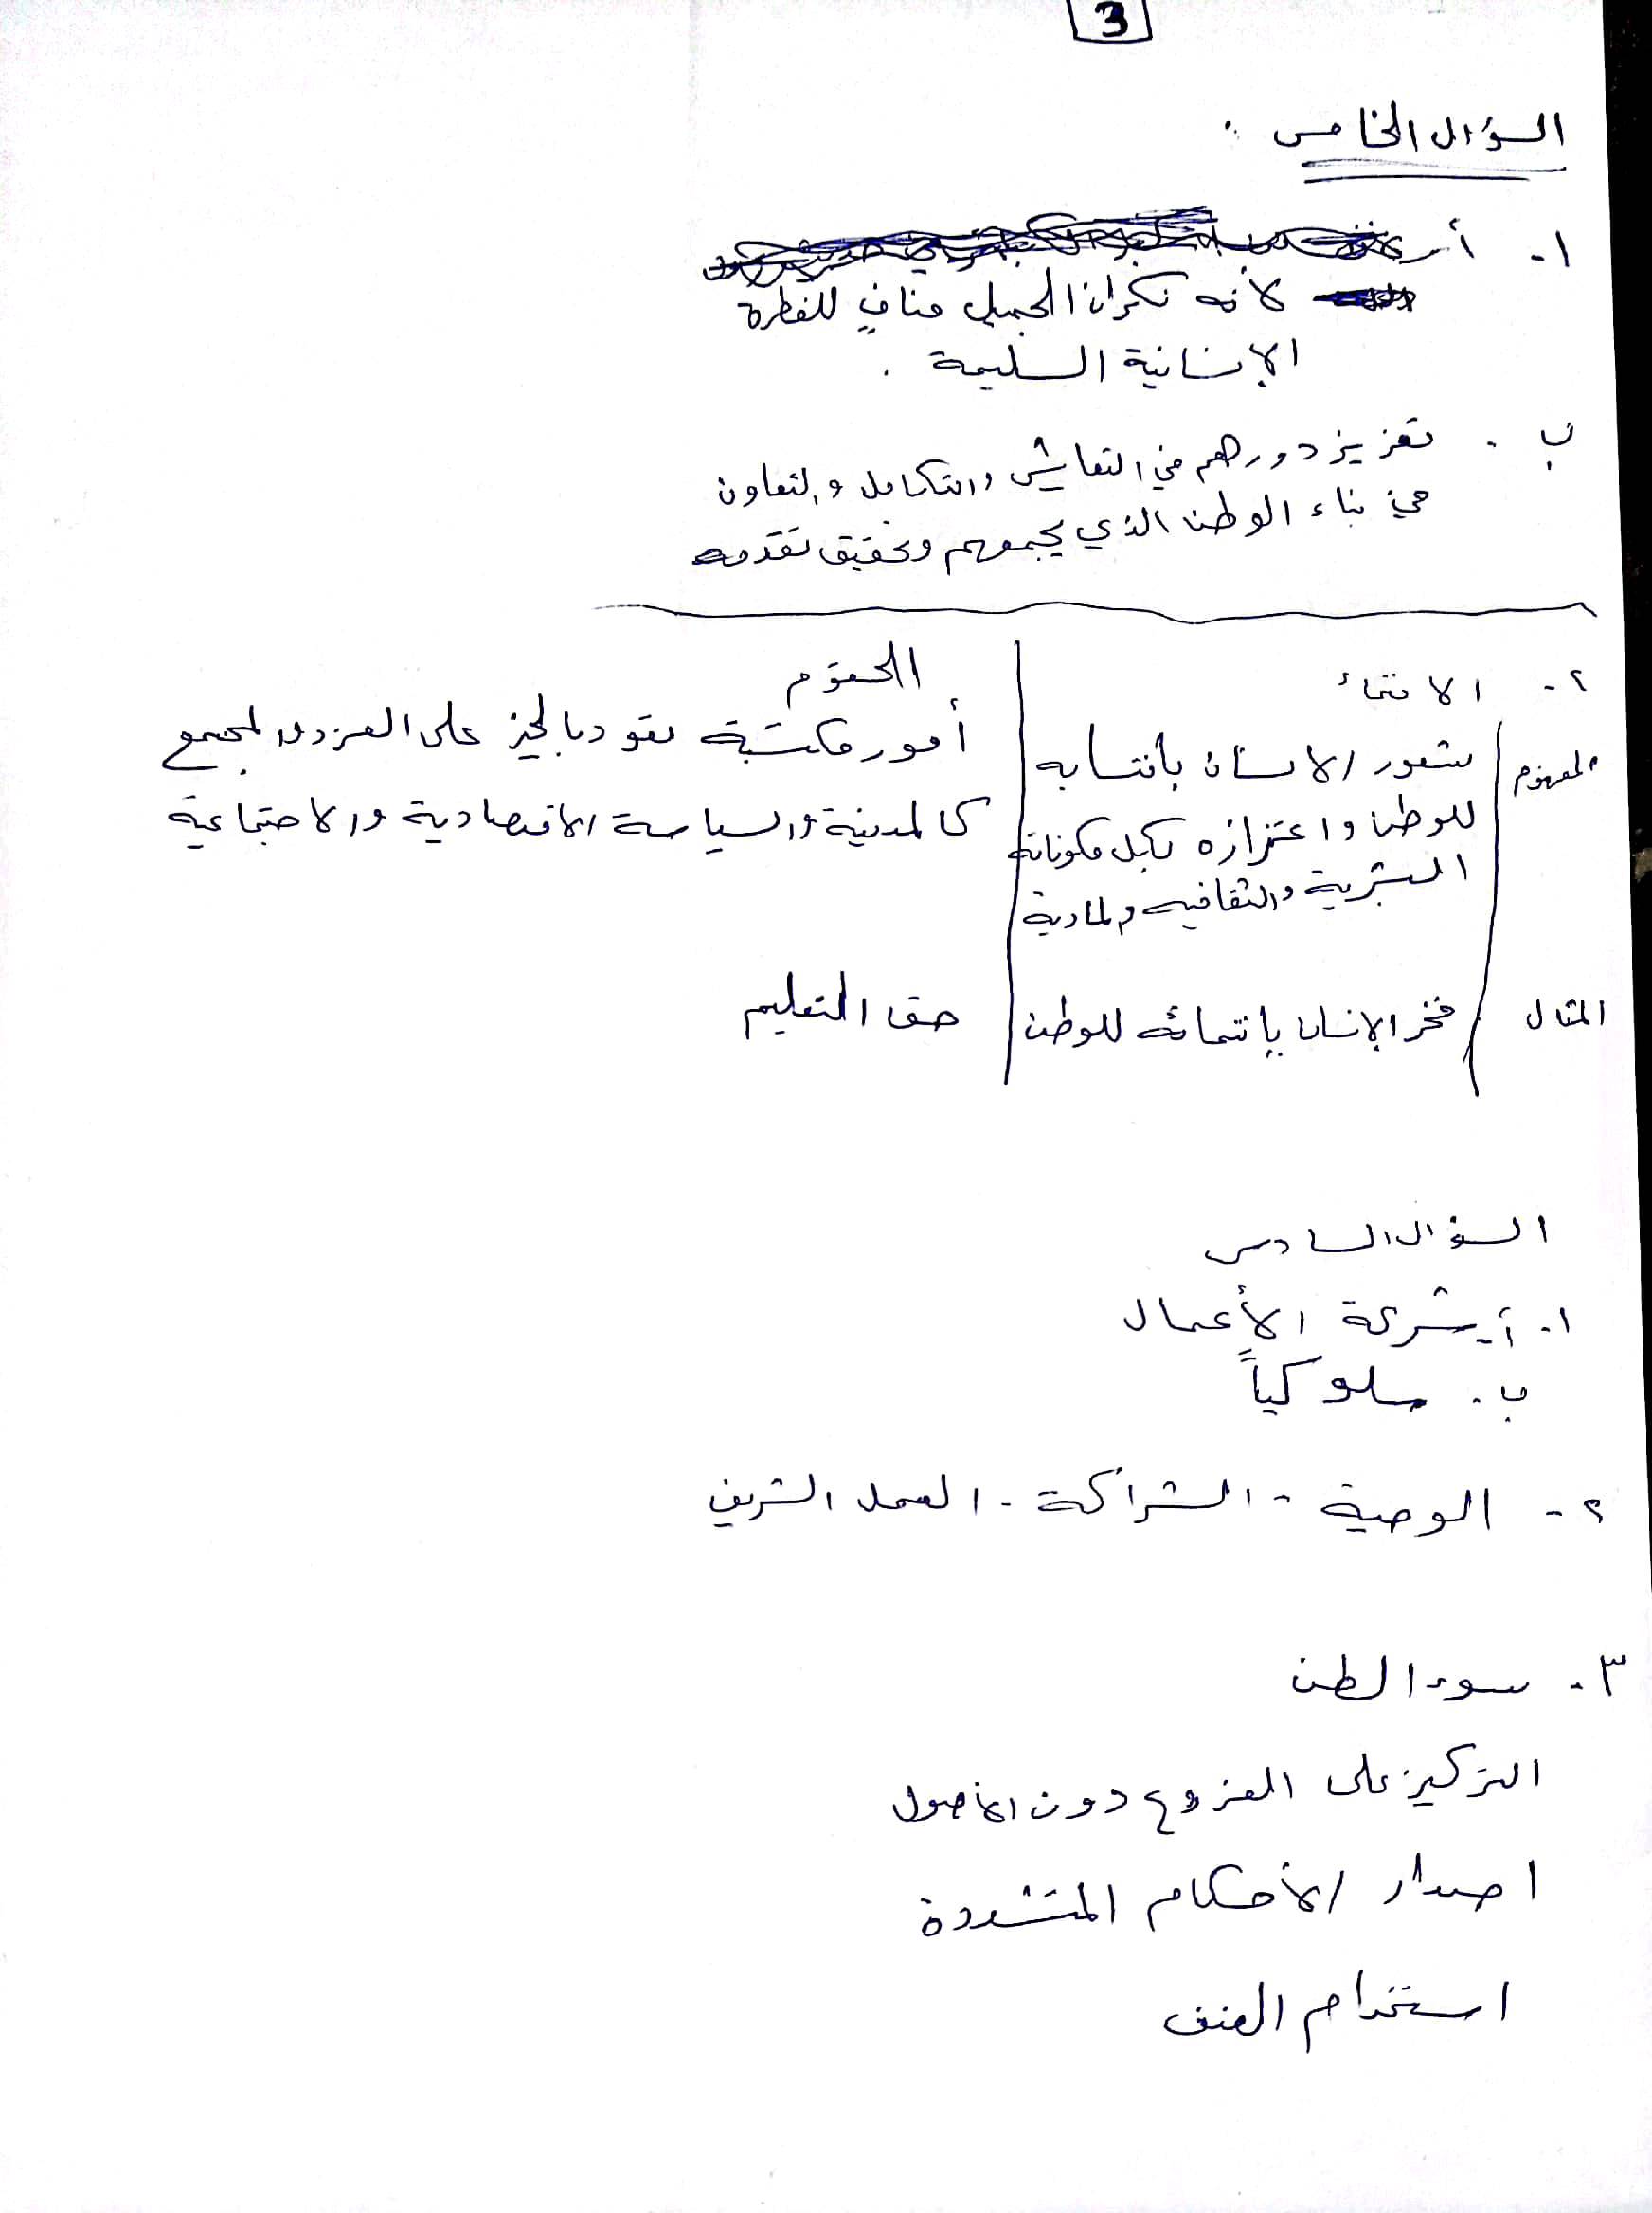 3
السؤال الخامس :
١- أ-
لأنه نكران الجميل منافٍ للفطرة
الإنسانية السليمة .
ب . تعزيز دورهم في التعايش والتكامل والتعاون
في بناء الوطن الذي يجمعهم وتحقيق تقدمه
٢- الانتماء الحقوق
المفهوم شعور الانسان بانتسابه أمور مكتسبة تعود بالخير على الفرد والمجتمع
للوطن واعتزازه بكل مكوناته كالمدنية والسياسة الاقتصادية والاجتماعية
البشرية والثقافيه والمادية
المثال فخر الإنسان بإنتمائه للوطن حق التعليم
السؤال السادس
١. أ- شركة الأعمال
ب. سلوكياً
٢- الوصية - الشراكة - العمل الشريف
٣. سوء الظن
التركيز على الفروع دون الأصول
اصدار الأحكام المتشددة
استخدام العنف